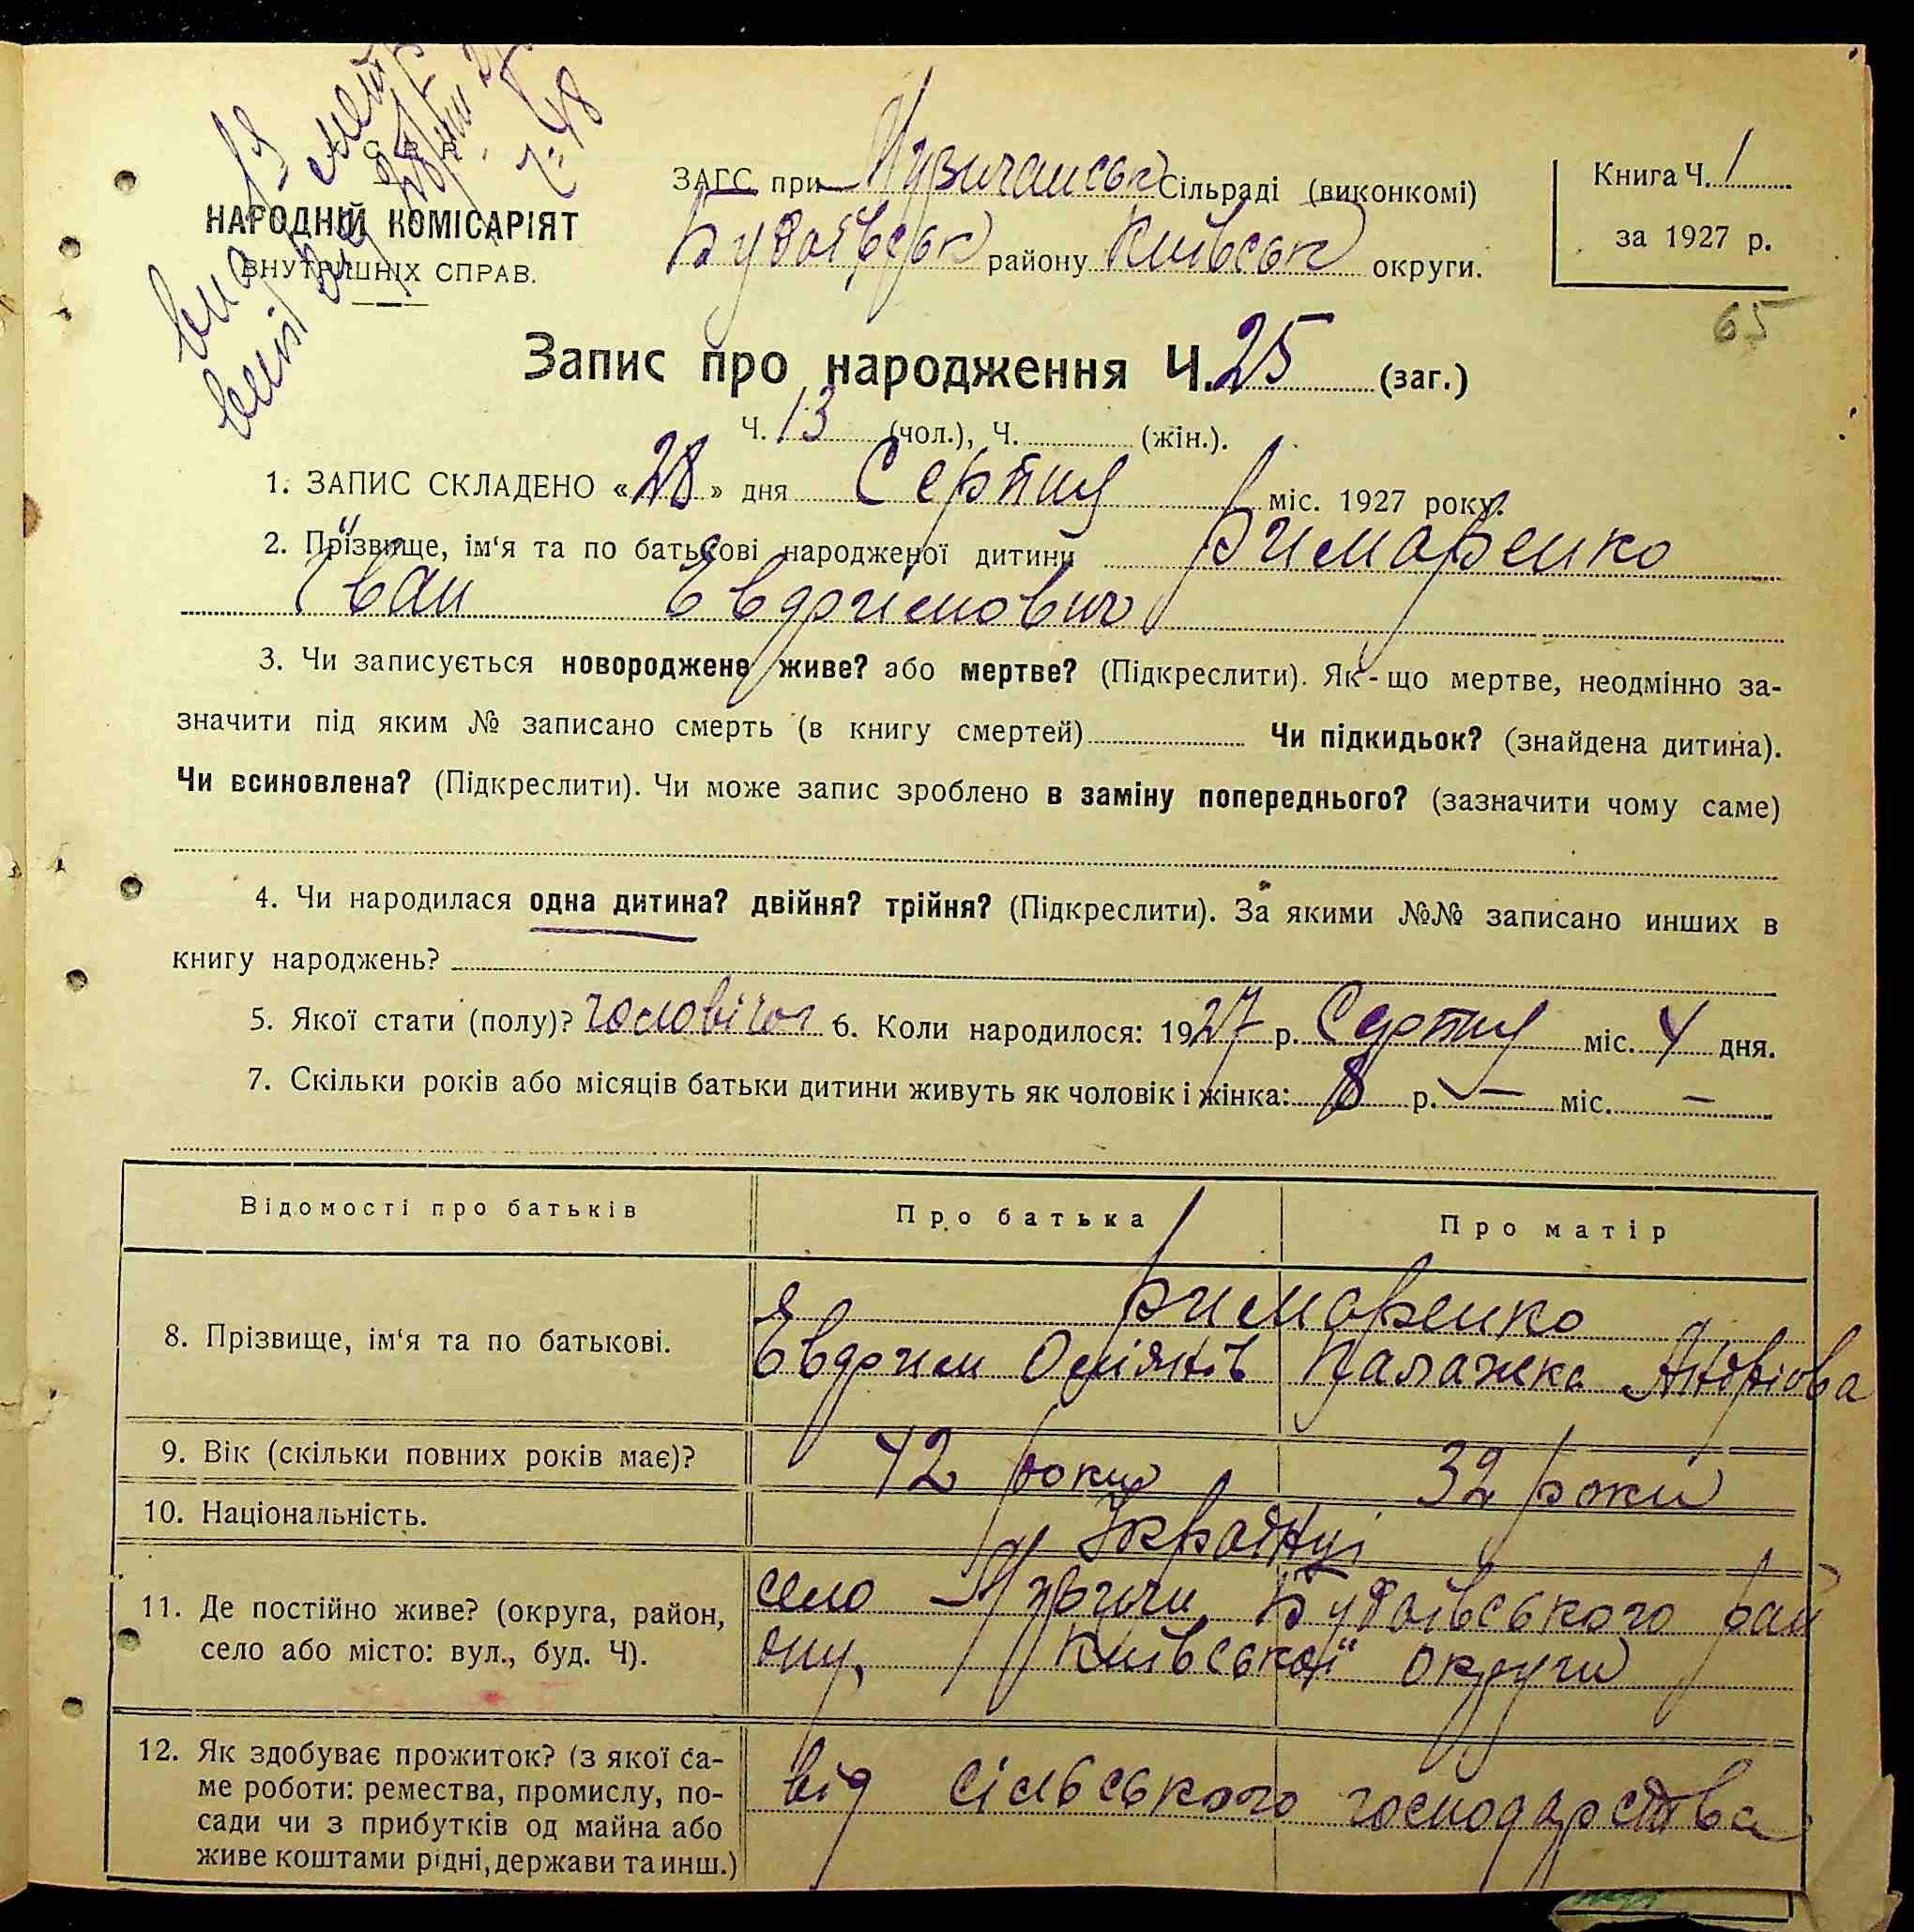 С. Р. Р.
НАРОДНІЙ КОМІСАРІЯТ
ВНУТРІШНІХ СПРАВ.
Ч: 48
ЗАГС при Музичанськ Сільраді (виконкомі)
Будаївськ району Київськ округи.
Книга Ч. 1
за 1927 р.
65
Запис про народження Ч. 25 (заг.)
Ч. 13 (чол.), Ч. (жін.).
1. ЗАПИС СКЛАДЕНО «28» дня Серпня міс. 1927 року.
2. Прізвище, ім‘я та по батькові народженої дитини Римаренко
Їван Евдохимович
3. Чи записується новороджене живе? або мертве? (Підкреслити). Як-що мертве, неодмінно за-
значити під яким № записано смерть (в книгу смертей) Чи підкидьок? (знайдена дитина).
Чи всиновлена? (Підкреслити). Чи може запис зроблено в заміну попереднього? (зазначити чому саме)
4. Чи народилася одна дитина? двійня? трійня? (Підкреслити). За якими №№ записано инших в
книгу народжень?
5. Якої стати (полу)? чоловічої 6. Коли народилося: 1927 р. Серпня міс. 4 дня.
7. Скільки років або місяців батьки дитини живуть як чоловік і жінка: 8 р. — міс. —
Відомості про батьків Про батька Про матір
8. Прізвище, ім‘я та по батькові.
Римаренко
Палажка Андріова
9. Вік (скільки повних років має)? 42 роки 32 роки
10. Національність. Українці
11. Де постійно живе? (округа, район,
село або місто: вул., буд. Ч).
село Музичи, Будаївського рай
ону, Київської округи
12. Як здобуває прожиток? (з якої са-
ме роботи: ремества, промислу, по-
сади чи з прибутків од майна або
живе коштами рідні, держави та инш.)
від сільського господарства